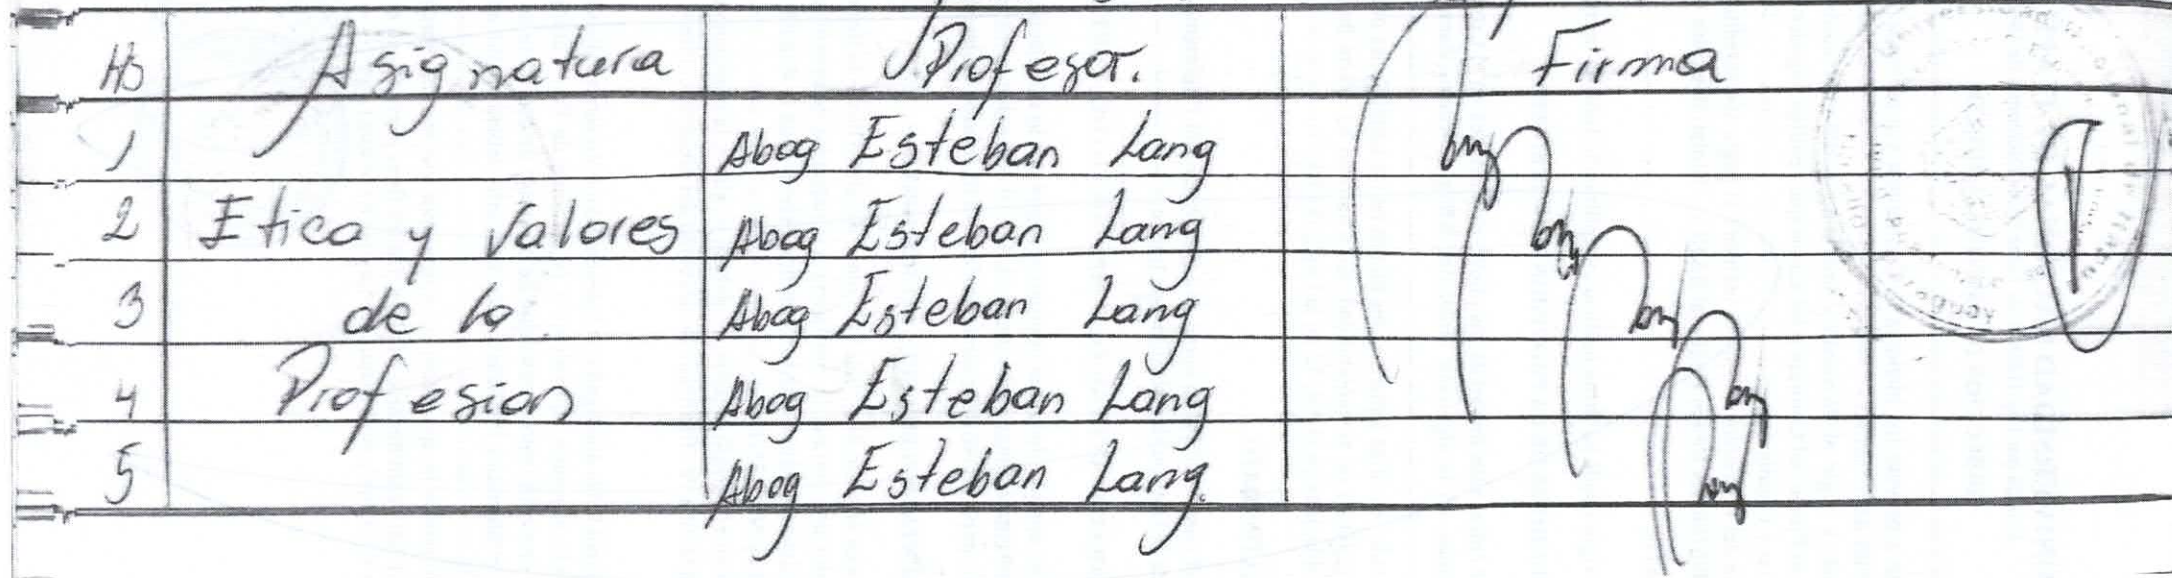 Hs Asignatura Profesor. Firma
1 Abog Esteban Lang
2 Etica y Valores Abog Esteban Lang
3 de la Abog Esteban Lang
4 Profesion Abog Esteban Lang
5 Abog Esteban Lang.